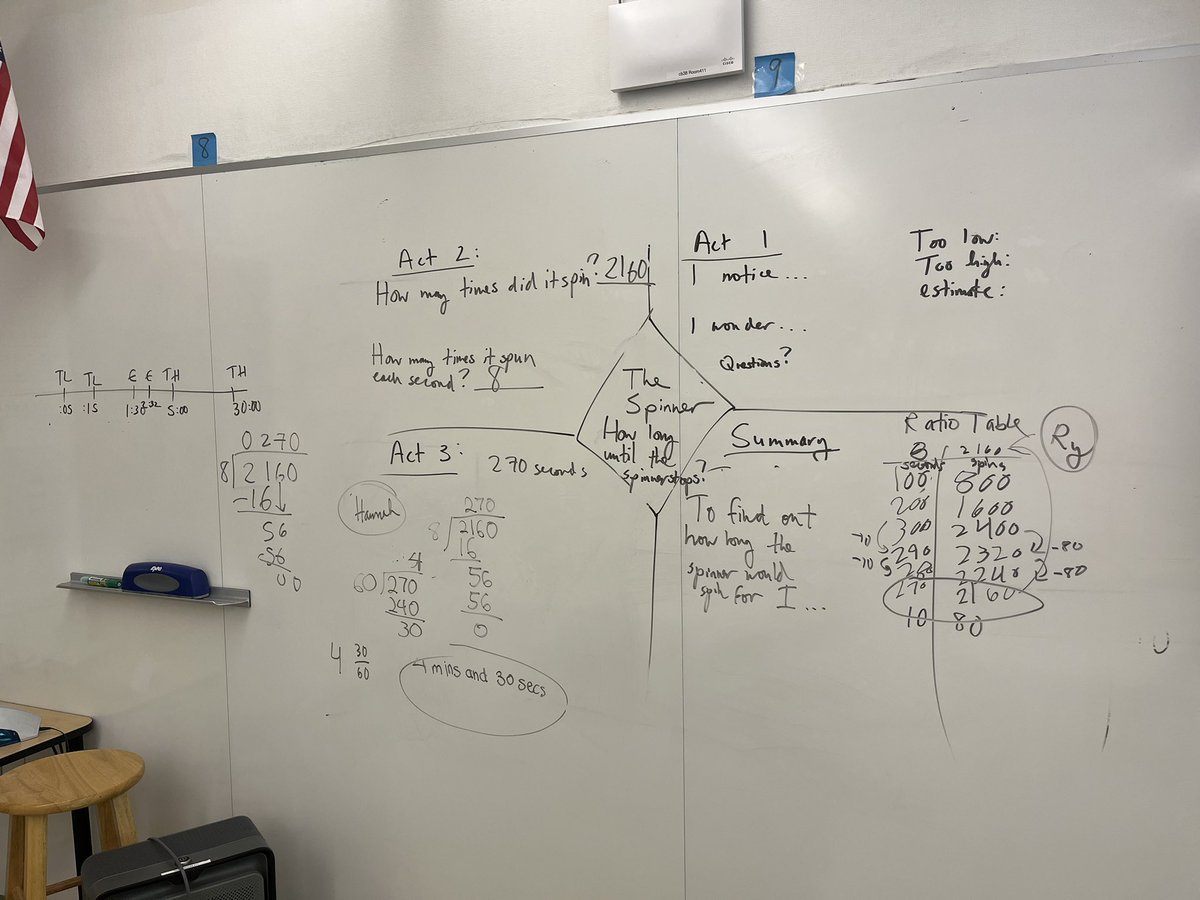 cb3B Room411
CISCO
8
9
Act 2:
How many times did it spin? 2160
How many times it spun
each second? 8
Act 1
I notice...
I wonder...
Questions?
Too low:
Too high:
estimate:
TL TL E E TH TH
:05 :15 1:30 2:32 5:00 30:00
0270
8 2160
-16
56
-56
00
The
Spinner
How long
until the
spinner stops?
Act 3:
270 seconds
Hannah
270
8 2160
16
56
56
0
4
60 270
240
30
4 30/60
4 mins and 30 secs
Summary
To find out
how long the
spinner would
spin for I...
Ratio Table
Ry
8 2160
seconds spins
100 800
200 1600
300 2400
-10 290 2320 -80
-10 280 2240 -80
270 2160
10 80
expo